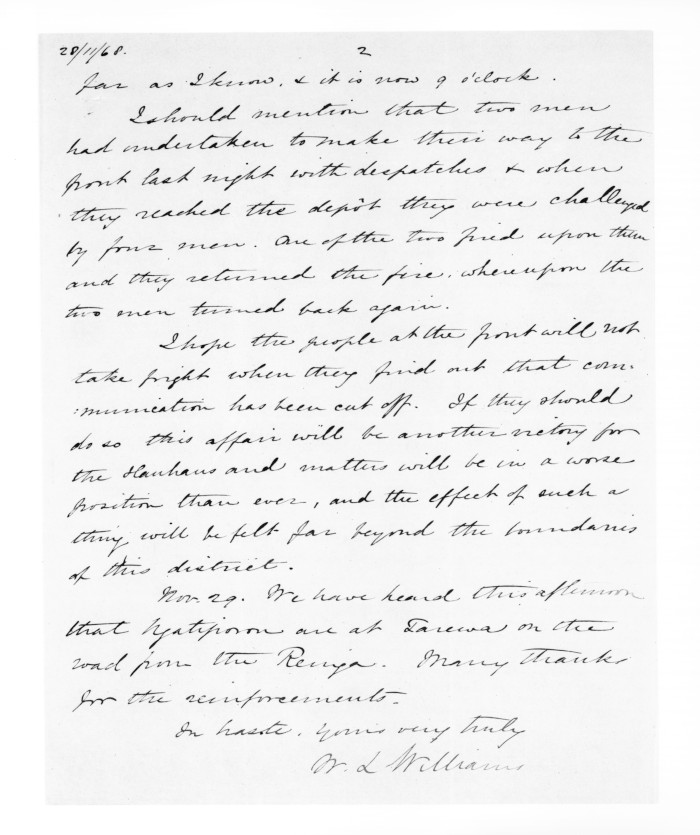 28/11/68. 2
far as I know, & it is now 9 o'clock.
I should mention that two men
had undertaken to make their way to the
front last night with despatches & when
they reached the depôt they were challenged
by four men. One of the two fired upon them
and they returned the fire, whereupon the
two men turned back again.
I hope the people at the front will not
take fright when they find out that com-
:munication has been cut off. If they should
do so this affair will be another victory for
the Hauhaus and matters will be in a worse
position than ever, and the effect of such a
thing will be felt far beyond the boundaries
of this district.
Nov. 29. We have heard this afternoon
that Ngatiporou are at Tarewa on the
road from the Reinga. Many thanks
for the reinforcements.
In haste, yours very truly
W. L Williams